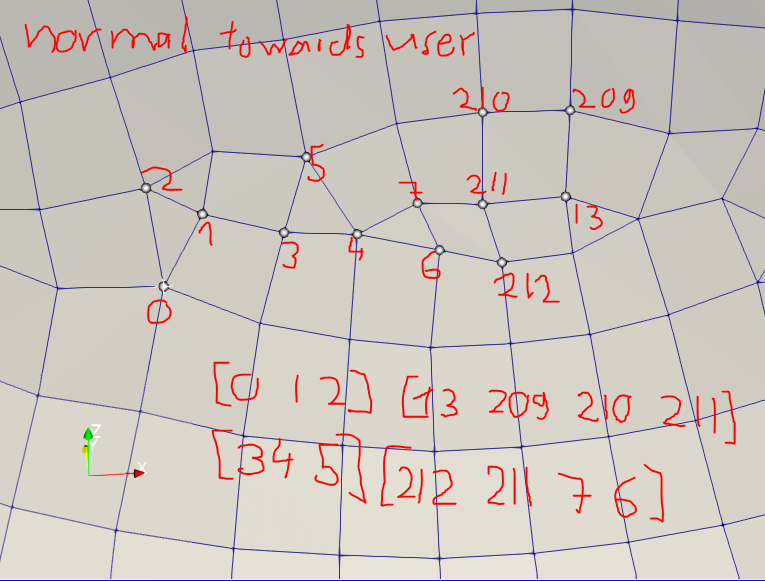 normal towards user
210 209
5
2 7 211
1 13
3 4 6
212
0
[0 1 2] [13 209 210 211]
[3 4 5] [212 211 7 6]
Z
X